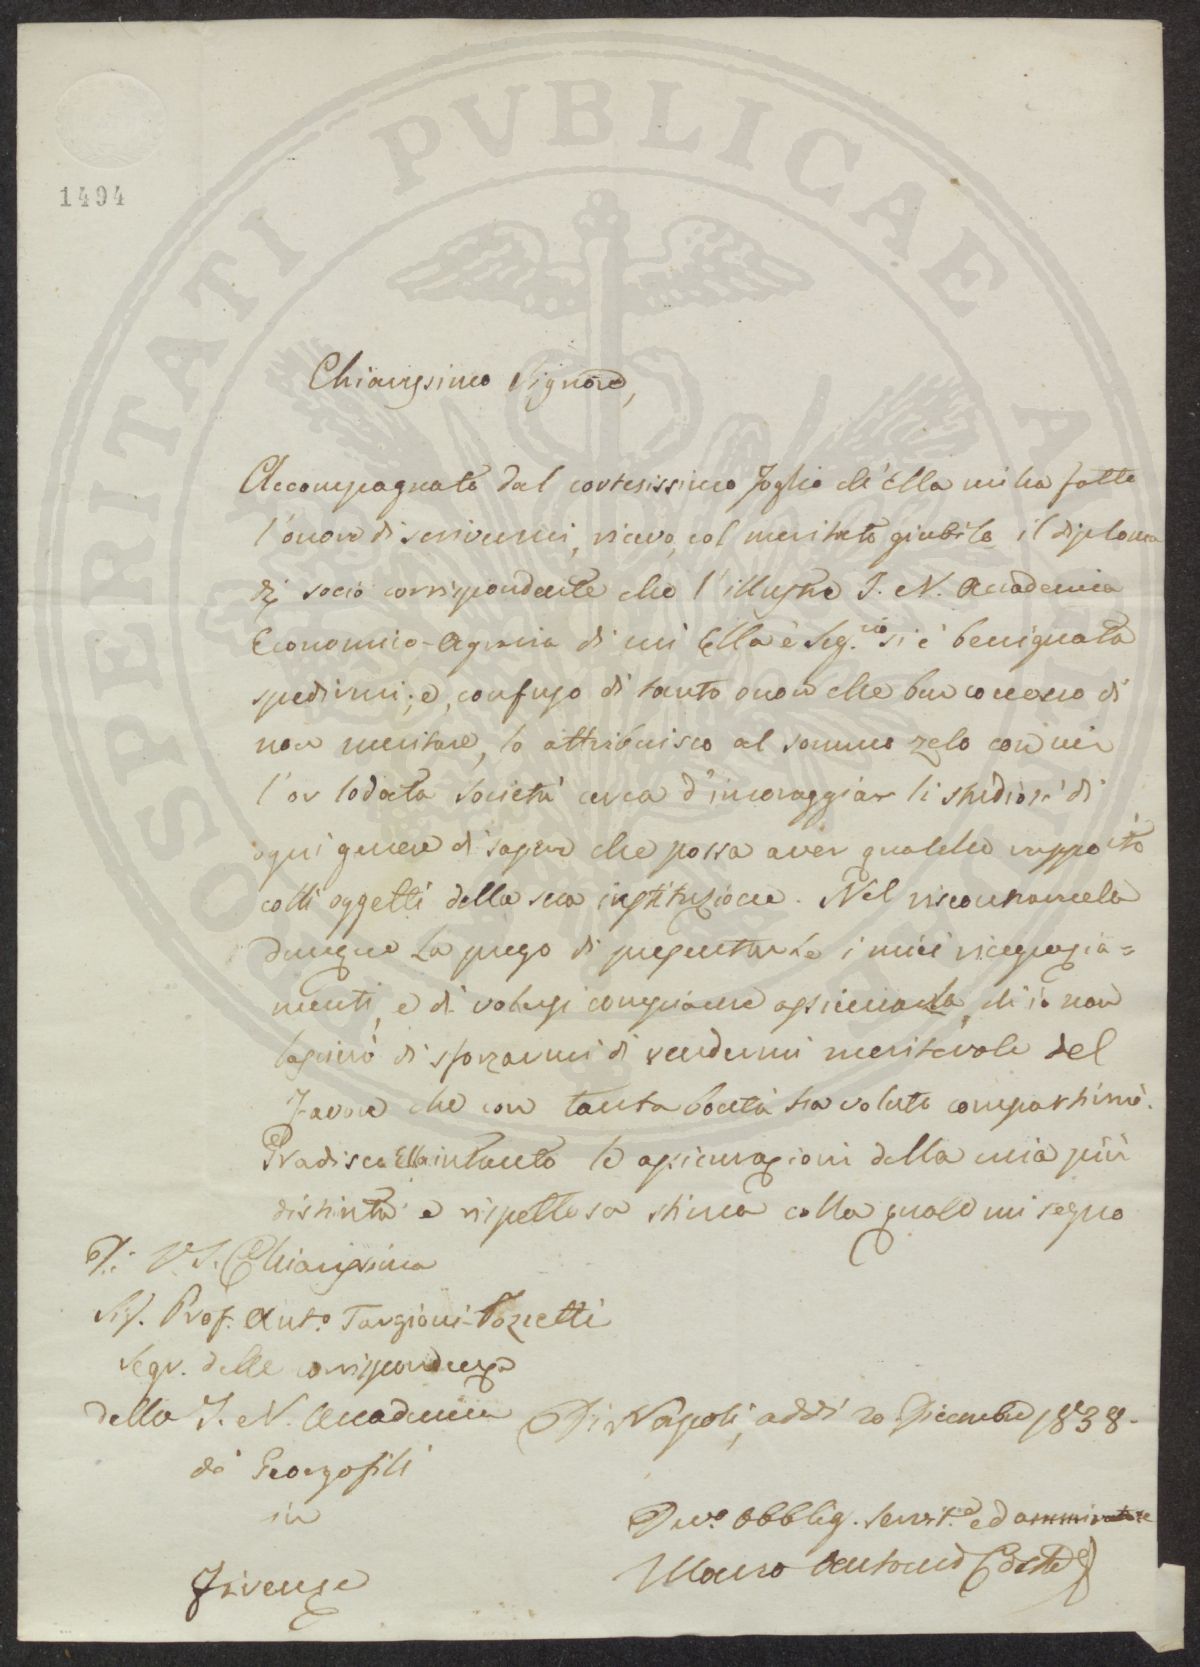 PROSPERITATI PUBLICAE AUGENDAE
1494
Chiarissimo Signore,
Accompagnato dal cortesissimo foglio ch'Ella mi ha fatto
l'onore di scrivermi, ricevo, col meritato giubilo il diploma
di socio corrispondente che l'illustre I. e R. Accademia
Economico-Agraria di cui Ella è Seg.rio si è benignata
spedirmi; e, confuso di tanto onor che ben conosco di
non meritare, lo attribuisco al sommo zelo con cui
l'or lodata Società cerca d'incoraggiar li studiosi di
ogni genere di sapere che possa aver qualche rapporto
colli oggetti della sua instituzione. Nel riscontrarnela
dunque La prego di presentarLe i miei ringrazia=
menti, e di volersi compiacere assicurarLa, ch'io non
lascierò di sforzarmi di rendermi meritevole del
favore che con tanta bontà ha voluto compartirmi.
Gradisca Ella intanto le assicurazioni della mia più
distinta e rispettosa stima colla quale mi segno
Di V. S. Chiarissima
Sig. Prof. Ant.o Targioni-Tozzetti
Segr. delle corrispondenze
della I. e R. Accademia
de' Georgofili
in
Firenze
Di Napoli, addì 20 Dicembre 1838.
Dev.o Obblig. Servit.e ed ammiratore
Mauro Antonio